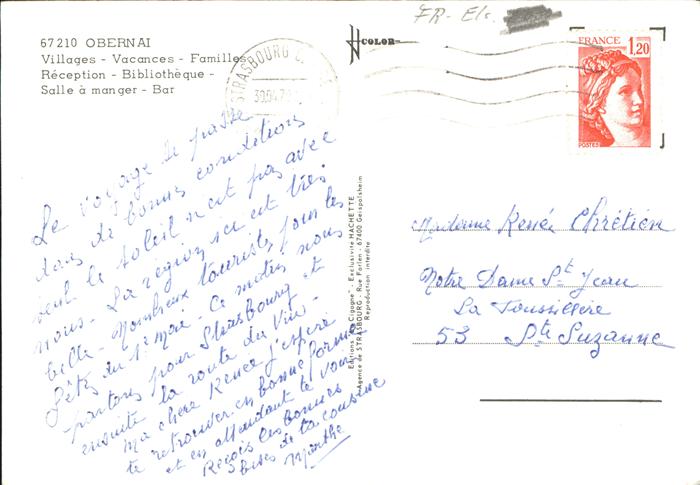 67210 OBERNAI
Villages - Vacances - Familles
Réception - Bibliothèque -
Salle à manger - Bar
FR - Els.
COLOR
STRASBOURG
FRANCE
1,20
POSTES
Le voyage se passe
dans de bonnes conditions
seul le soleil n'est pas avec
nous. La région ici est très
belle - Nombreux touristes pour les
fêtes du 1er Mai - Ce matin nous
partons pour Strasbourg et
ensuite la route du Vin -
Ma chère Renée j'espère
te retrouver en bonne forme
et en attendant te voir
Reçois les bonnes
bises de ta cousine
Marthe
Editions La Cigogne - Exclusivité HACHETTE
Agence de STRASBOURG - Rue Forlen - 67400 Geispolsheim
Reproduction interdite
Madame Renée Chrétien
Notre Dame St Jean
La
53 Ste Suzanne